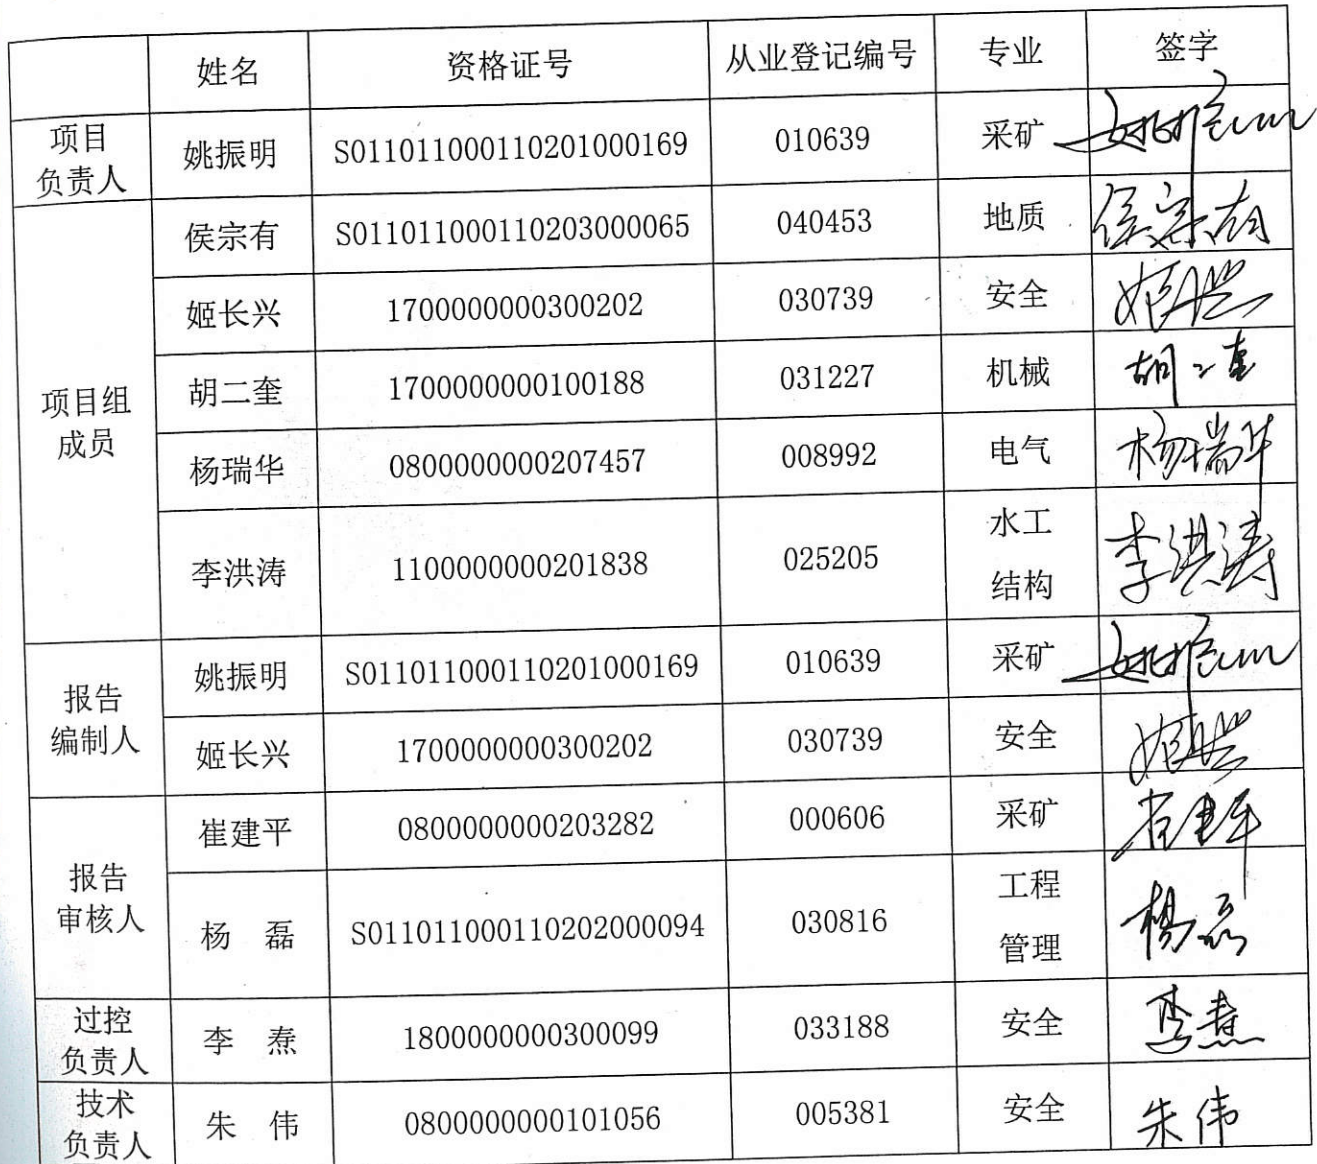 姓名 资格证号 从业登记编号 专业 签字
项目
负责人
姚振明 S011011000110201000169 010639 采矿 姚振明
项目组
成员
侯宗有 S011011000110203000065 040453 地质 侯宗有
姬长兴 1700000000300202 030739 安全 姬长兴
胡二奎 1700000000100188 031227 机械 胡二奎
杨瑞华 0800000000207457 008992 电气 杨瑞华
李洪涛 1100000000201838 025205 水工
结构
李洪涛
报告
编制人
姚振明 S011011000110201000169 010639 采矿 姚振明
姬长兴 1700000000300202 030739 安全 姬长兴
报告
审核人
崔建平 0800000000203282 000606 采矿 崔建平
杨 磊 S011011000110202000094 030816 工程
管理
杨磊
过控
负责人
李 焘 1800000000300099 033188 安全 李焘
技术
负责人
朱 伟 0800000000101056 005381 安全 朱伟